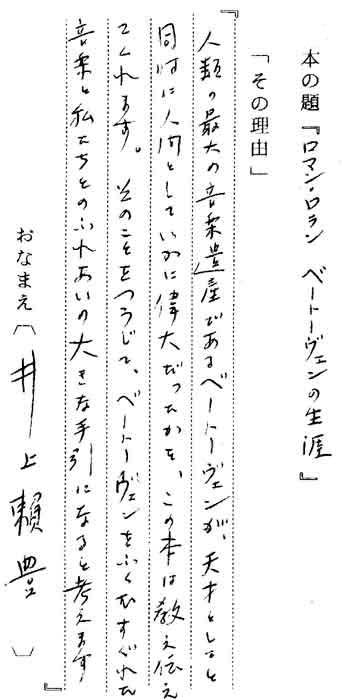 本の題『ロマン・ロラン ベートーヴェンの生涯』
「その理由」
『人類の最大の音楽遺産であるベートーヴェンが、天才としると
同時に人間としていかに偉大だったかを、この本は教え伝え
てくれます。そのことをつうじて、ベートーヴェンをふくむすぐれた
音楽と私たちとのふれあいの大きな手引になると考えます』
おなまえ〔井上頼豊〕